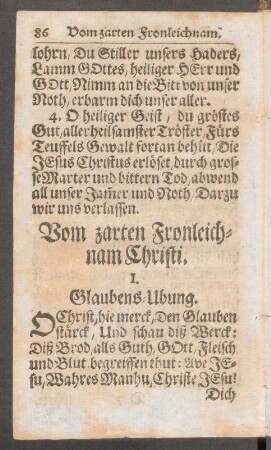 86 Vom zarten Fronleichnam.
lohrn, Du Stiller unsers Haders,
Lamm GOttes, heiliger HErr und
GOtt, Nimm an die Bitt von unser
Noth, erbarm dich unser aller.
4. O heiliger Geist, du gröstes
Gut, aller heilsamster Tröster Fürs
Teuffels Gewalt fortan behüt, Die
JEsus Christus erlöset, durch gros-
se Marter und bittern Tod, abwend
all unser Jam̃er und Noth, Darzu
wir uns verlassen.
Vom zarten Fronleich-
nam Christi.
I.
Glaubens-Ubung.
O Christ, hie merck, Den Glauben
stärck, Und schau diß Werck:
Diß Brod, alls Guth, GOtt, Fleisch
und Blut begreiffen thut: Ave JE-
su, Wahres Manhu, Christe JEsu!
Dich